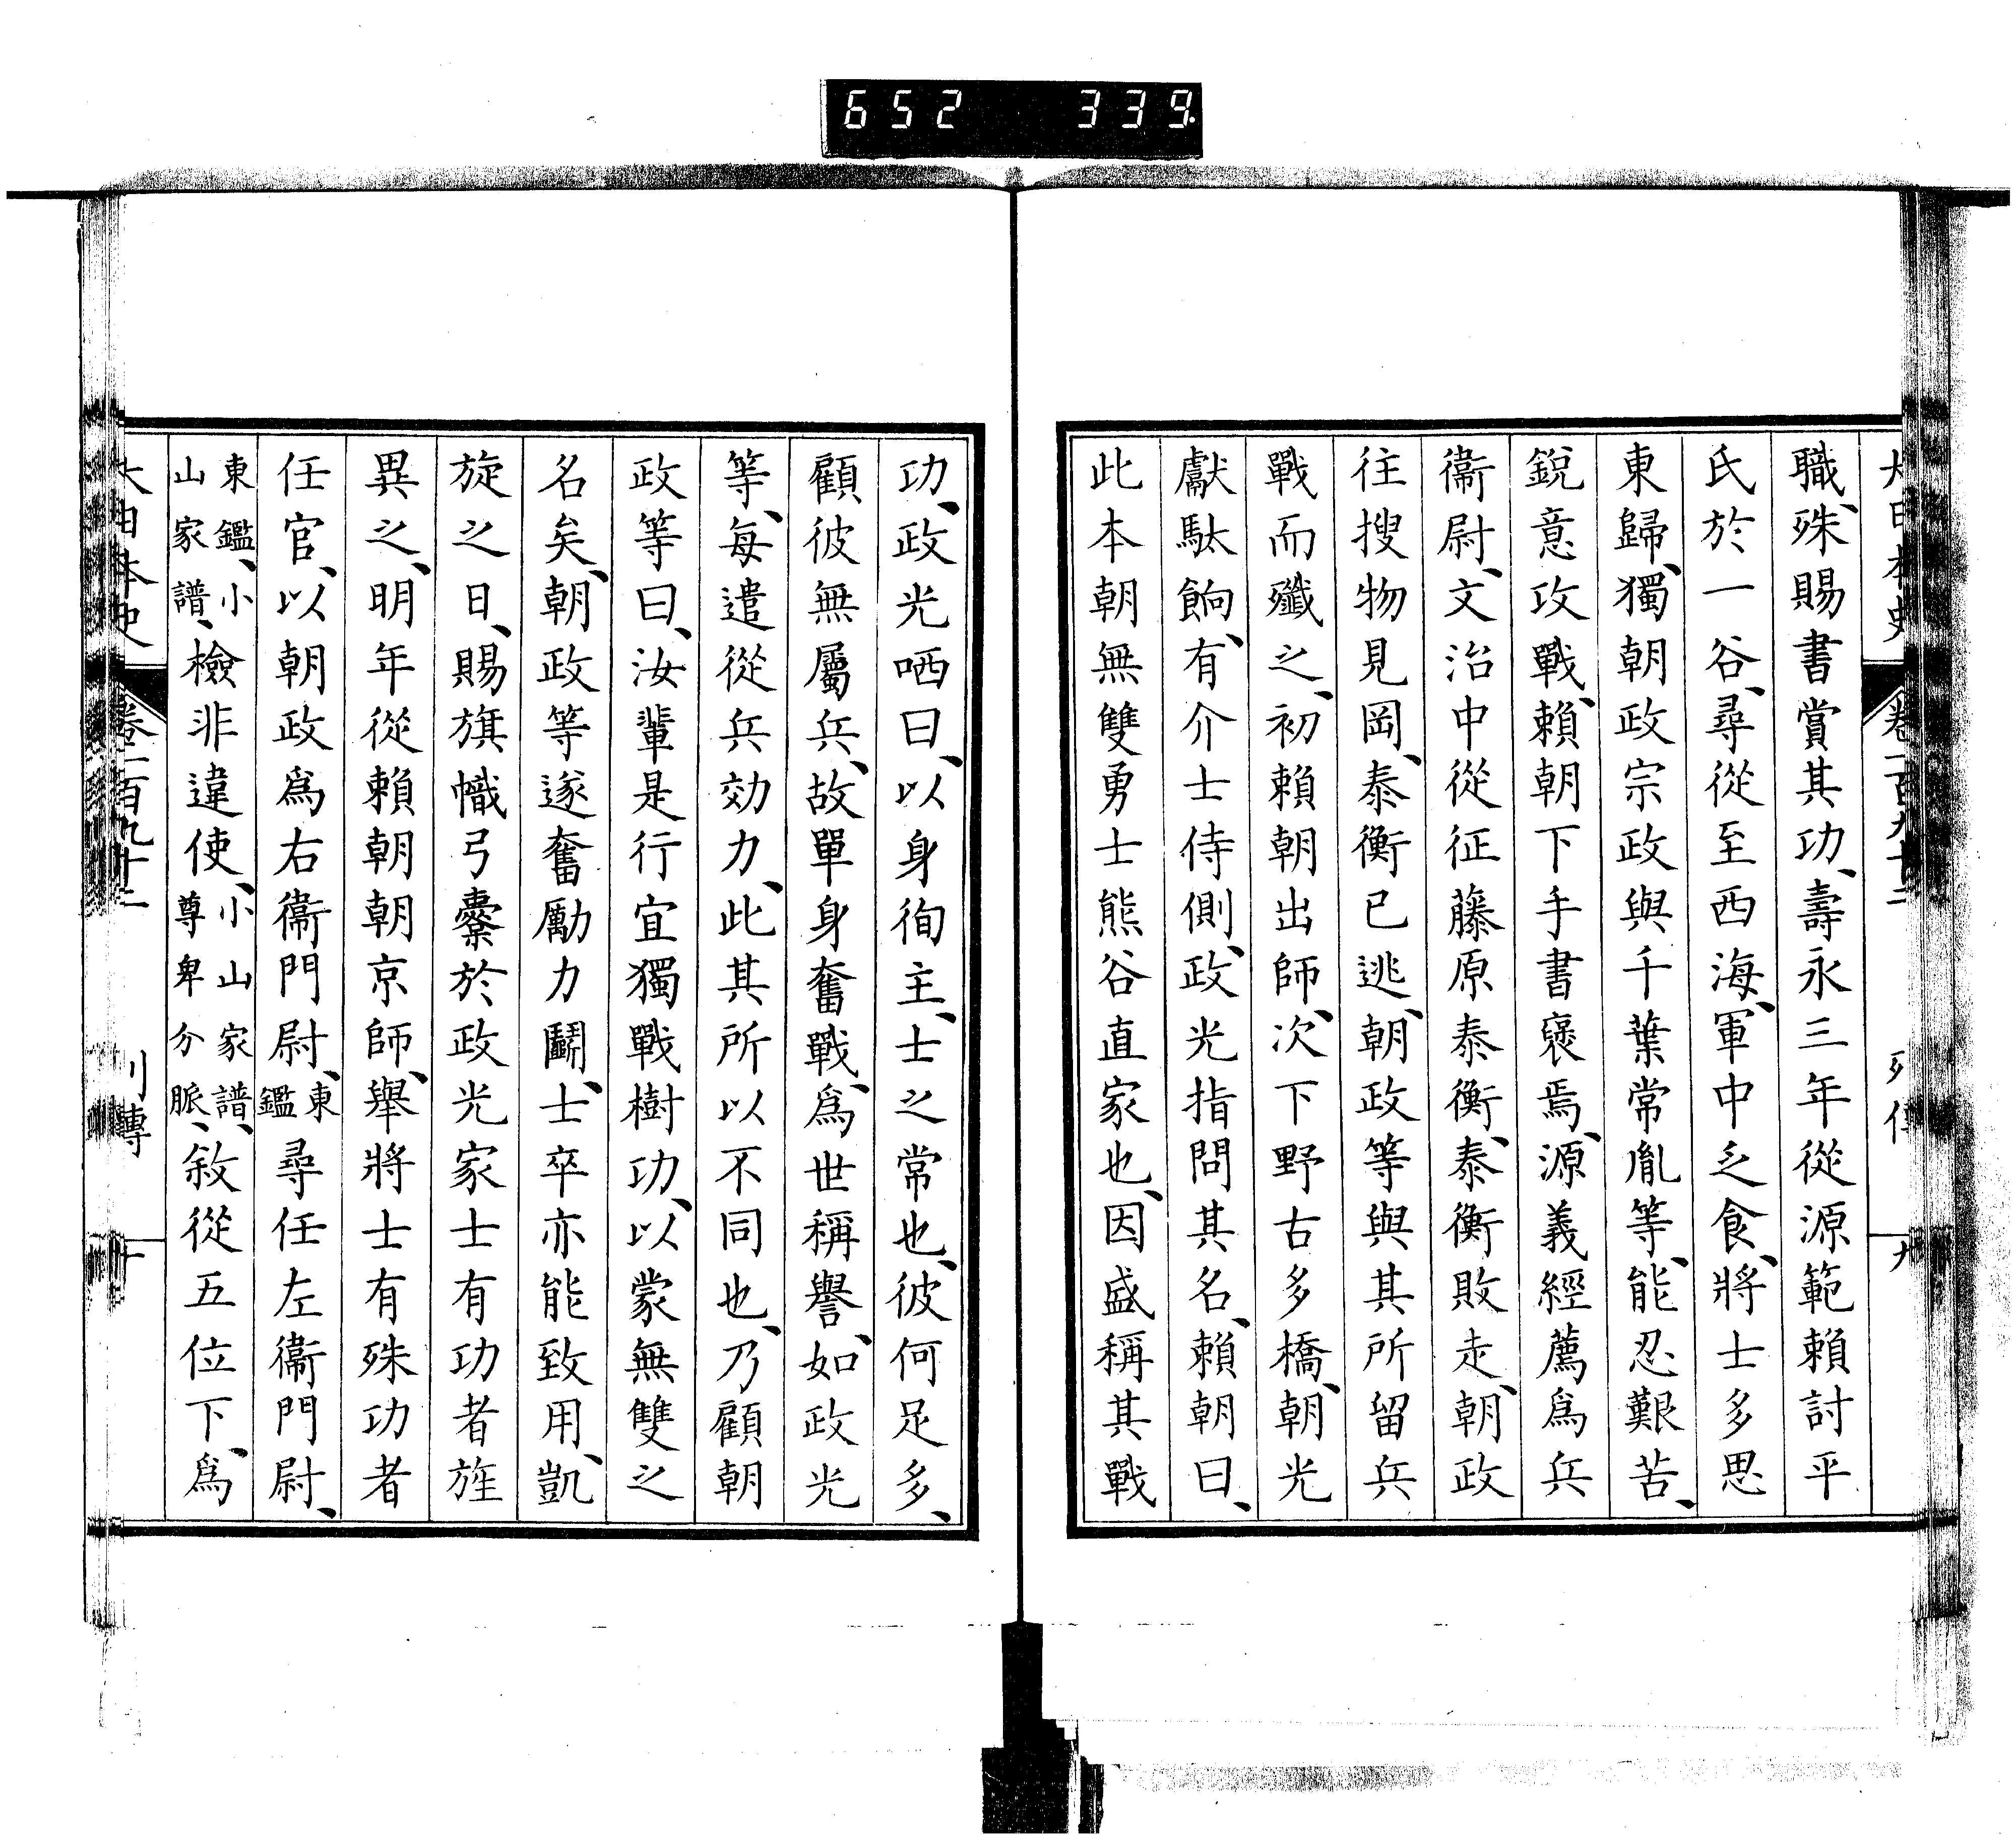 652 339.
大日本史 卷一百九十二 列傳 九
職、殊賜書賞其功、壽永三年從源範賴討平
氏於一谷、尋從至西海、軍中乏食、將士多思
東歸、獨朝政宗政與千葉常胤等、能忍艱苦、
銳意攻戰、賴朝下手書褒焉、源義經薦爲兵
衞尉、文治中從征藤原泰衡、泰衡敗走、朝政
往搜物見岡、泰衡已逃、朝政等與其所留兵
戰而殲之、初賴朝出師、次下野古多橋、朝光
獻馱餉、有介士侍側、政光指問其名、賴朝曰、
此本朝無雙勇士熊谷直家也、因盛稱其戰
功、政光哂曰、以身徇主、士之常也、彼何足多、
顧彼無屬兵、故單身奮戰、爲世稱譽、如政光
等、每遣從兵効力、此其所以不同也、乃顧朝
政等曰、汝輩是行宜獨戰樹功、以蒙無雙之
名矣、朝政等遂奮勵力鬬、士卒亦能致用、凱
旋之日、賜旗幟弓櫜於政光家士有功者旌
異之、明年從賴朝朝京師、舉將士有殊功者
任官、以朝政爲右衞門尉、東鑑尋任左衞門尉、
東鑑、小山家譜、檢非違使、小山家譜、尊卑分脈、敘從五位下、爲
大日本史 卷一百九十二 列傳 十